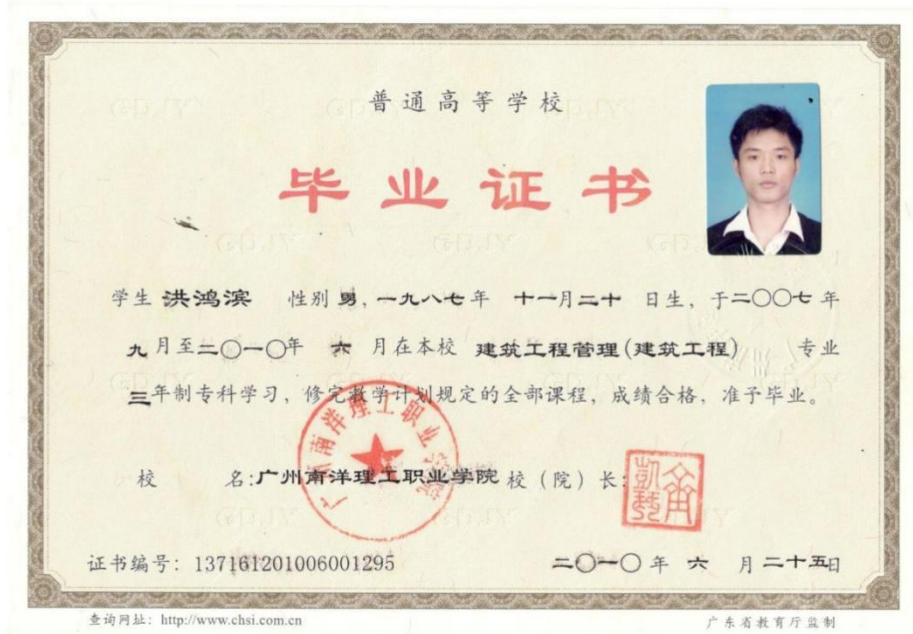 普通高等学校
毕业证书
学生 洪鸿滨 性别 男，一九八七年 十一月二十 日生，于二〇〇七年
九月至二〇一〇年 六 月在本校 建筑工程管理(建筑工程) 专业
三年制专科学习，修完教学计划规定的全部课程，成绩合格，准予毕业。
校 名：广州南洋理工职业学院 校（院）长：
证书编号：137161201006001295 二〇一〇年 六 月二十五日
查询网址：http://www.chsi.com.cn 广东省教育厅监制